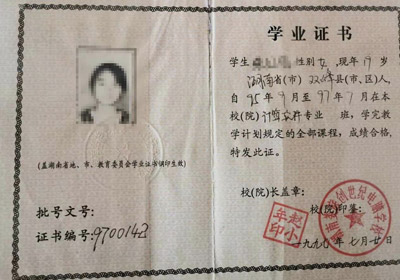 (盖湖南省地、市、教育委员会学业证书钢印生效)
批号文号:
证书编号:9700142
学业证书
学生 性别女,现年19岁
湖南省(市)双峰县(市、区)人,
自95年9月至97年7月在本
校(院)计算 专业 班,学完教
学计划规定的全部课程,成绩合格,
特发此证。
校(院)长盖章:
校(院)印鉴:
赵小年印
创世纪电脑学校
一九九 年七月廿日